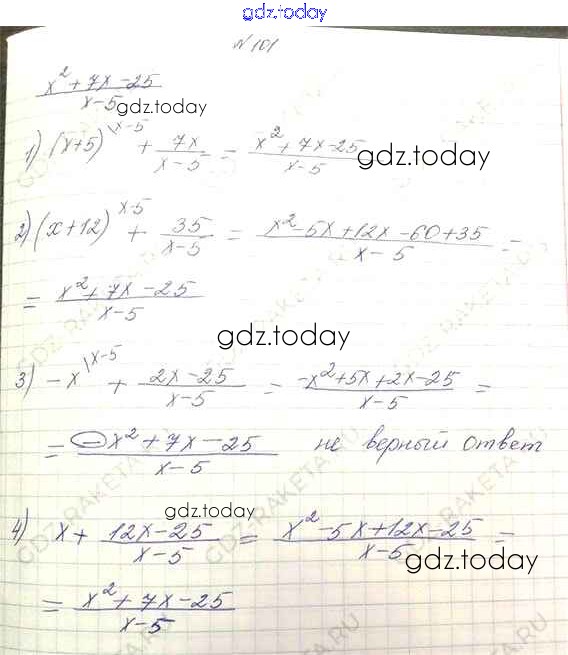 gdz.today
№ 101
x² + 7x - 25 / x - 5
gdz.today
1) (x+5)\x-5 + 7x / x-5 = x² + 7x - 25 / x - 5
gdz.today
2) (x+12) x-5 + 35 / x-5 = x² - 5x + 12x - 60 + 35 / x - 5 =
= x² + 7x - 25 / x - 5
gdz.today
3) -x \x-5 + 2x - 25 / x - 5 = -x² + 5x + 2x - 25 / x - 5 =
= -x² + 7x - 25 / x - 5 не верный ответ
gdz.today
4) x + 12x - 25 / x - 5 = x² - 5x + 12x - 25 / x - 5 =
gdz.today
= x² + 7x - 25 / x - 5
GDZ-RAKETA.RU